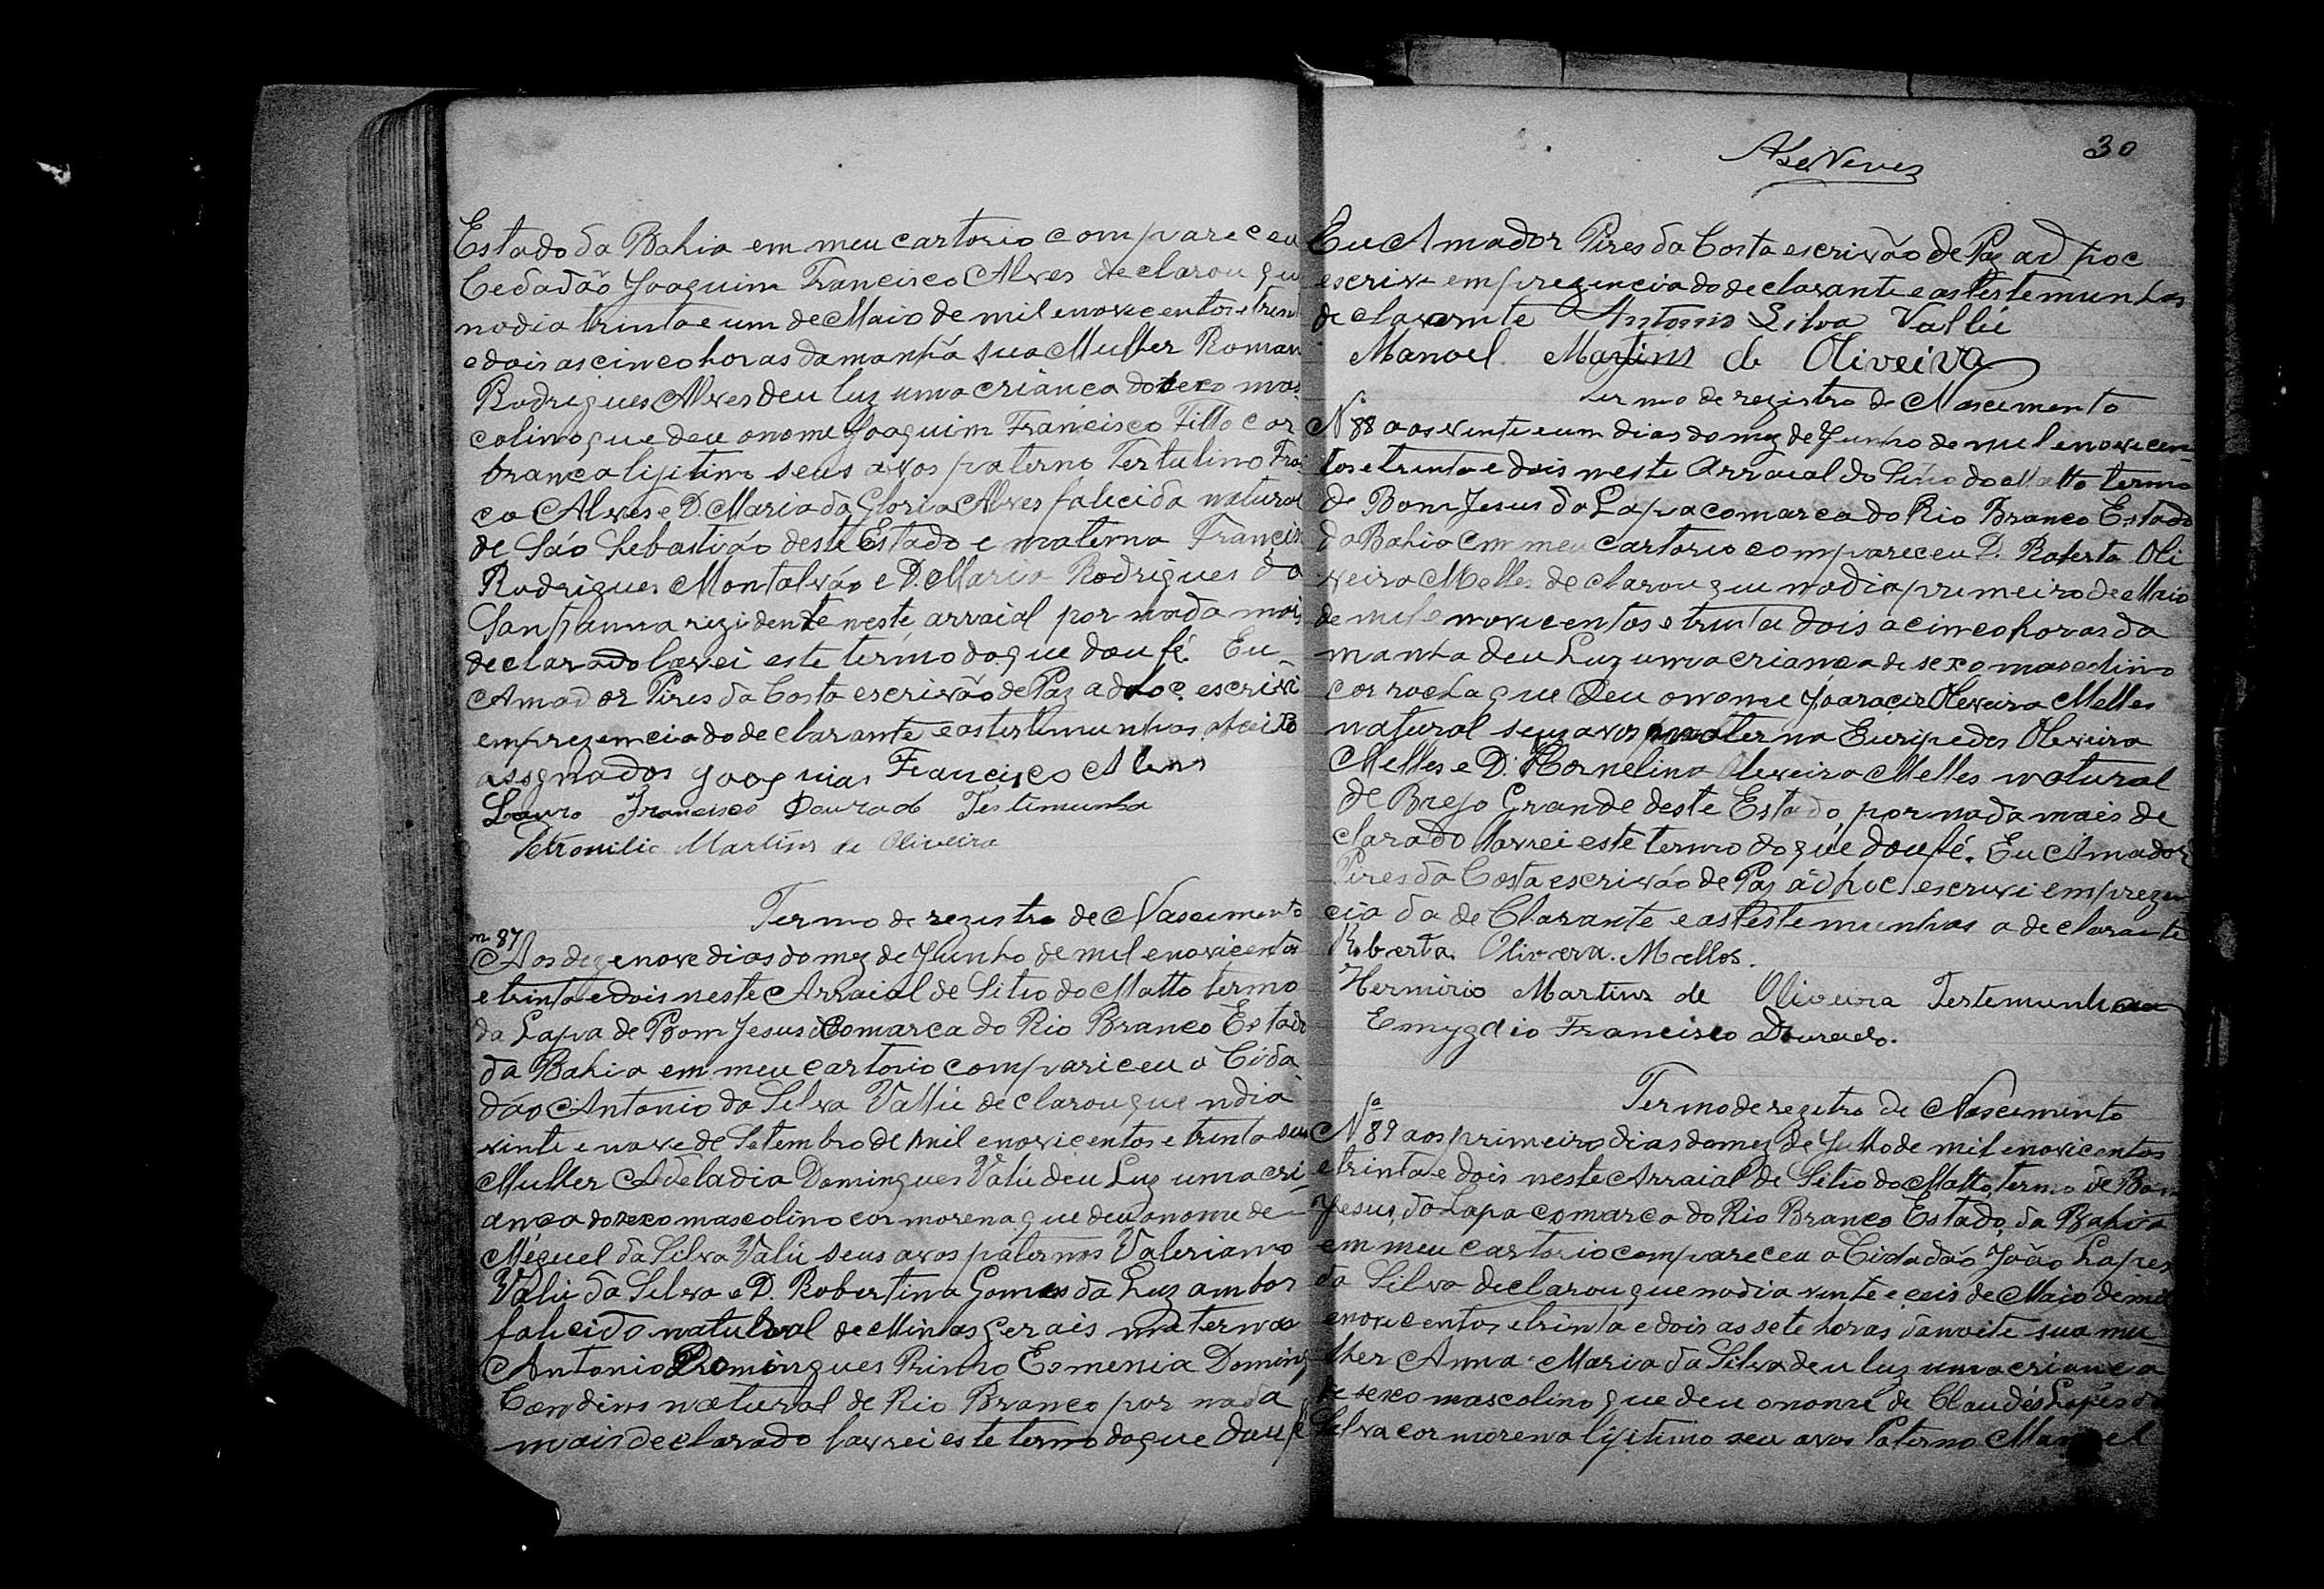 Estado da Bahia em meu cartorio compareceu
Cedadão Joaquim Francisco Alves declarou qu
nodia trinta e um de Maio de mil enovecentos e trin
e dois as cinco horas da manhã sua Mulher Roman
Rodrigues Alves deu luz uma criança do sexo mas
colino que deu onome Joaquim Francisco Filho cor
branca lijitimo seus avos paterno Tertulino Fran
co Alves e D. Maria da Gloria Alves falicida natural
de São Sebastião deste Estado e materna Francis
Rodrigues Montalvão e D. Maria Rodrigues da
Santanna rizidente neste arraial por nada mais
declarado lavrei este termo do que dou fé. Eu
Amador Pires da Costa escrivão de Paz adhoc escrivi
emprezencia do declarante e as testimunhas abaixo
assgnados Joaquim Francisco Alves
Lauro Francisco Dourado Testimunha
Petronilio Martins de Oliveira
Termo de rezistro de Nascimento
n 87
Aos dezenove dias do mez de Junho de mil enovicentos
e trinta e dois neste Arraial de Sitio do Matto termo
da Lapa de Bom Jesus Comarca do Rio Branco Estado
da Bahia em meu cartorio compariceu o Cida
dão Antonio da Silva Vallú declarou que ndia
vinte e nove de Setembro de mil enovicentos e trinta sua
Mulher Adeladia Domingues Valú deu Luz uma cri-
ança do sexo mascolino cor morena que deu onome de
Meguel da Silva Valú seus avos paternos Valeriano
Valú da Silva e D. Robertina Gomes da Luz ambos
falicido natural de Minas Gerais materna
Antonio Domingues Primo Esmenia Doming
Candins natural de Rio Branco por nada
mais declarado lavrei este termo do que dou fé
30
Eu Amador Pires da Costa escrivão de Paz ad hoc
escrivi emprezencia do declarante e as testemunhas
declarante Antonio Silva Vallú
Manoel Martins de Oliveira
termo de rezistro de Nascimento
N 88 aos vinte e um dias do mez de Junho de mil enovicen-
tos e trinta e dois neste Arraial do Sitio do Matto termo
de Bom Jesus da Lapa comarca do Rio Branco Estado
da Bahia em meu cartorio compareceu D. Roberta Oli
veira Melles declarou que nodia primeiro de Maio
de mil e novicentos e trinta dois a cinco horas da
manha deu Luz uma criança de sexo mascolino
cor rocha que deu onome Joaracir Oliveira Melles
natural seus avos materna Euripedes Oliveira
Melles e D. Hornelina Oliveira Melles natural
de Brejo Grande deste Estado, por nada mais de
clarado lavrei este termo do que dou fé. Eu Amador
Pires da Costa escrivão de Paz adhoc escrivi emprezen
cia da de Clarante e as testemunhas a declarante
Roberta Olivera. Mellos.
Hermirio Martins de Oliveira Testemunha
Emygdio Francisco Dourado.
Termo de rezitro de Nascimento
Nº 89 aos primeiro dias do mez de Julho de mil enovicentos
e trinta e dois neste Arraial de Sitio do Matto, termo de Bom
Jesus, da Lapa comarca do Rio Branco Estado da Bahia
em meu cartorio compareceu o Cidadão João Lopes
da Silva declarou que nodia vinte e ceis de Maio de mil
enovicentos e trinta e dois as sete horas da noite sua mu
lher Anna Maria da Silva deu luz uma criança
de sexo mascolino que deu onome de Claudés Lopes da
Silva cor morena lijitimo seu avos Paterno Manoel